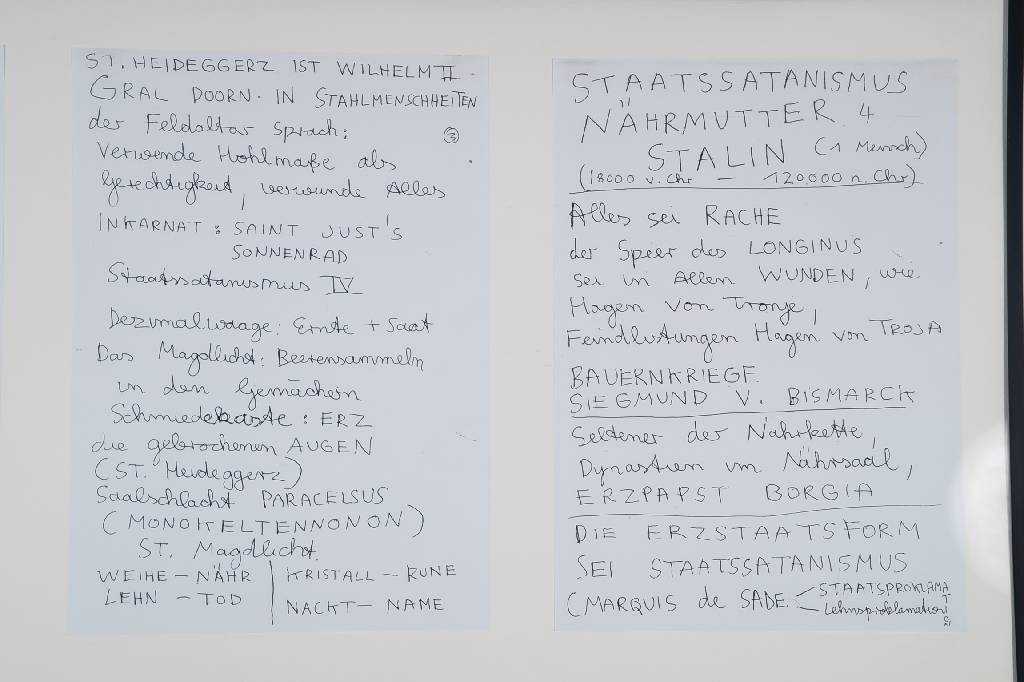 ST. HEIDEGGERZ IST WILHELM II.
GRAL DOORN. IN STAHLMENSCHHEITEN
der Feldaltar sprach:
③
Verwende Hohlmaße als
Gerechtigkeit, verwunde Alles
INKARNAT: SAINT JUST'S
SONNENRAD
Staatssatanismus IV
Dezimalwaage: Ernte + Saat
Das Magdlicht: Beerensammeln
in den Gemächern
Schmiedekaste: ERZ
die gebrochenen AUGEN
(ST. Heideggerz)
Saalschlacht PARACELSUS
(MONOKELTENNONON)
ST. Magdlicht.
WEIHE – NÄHR
LEHN – TOD
KRISTALL – RUNE
NACKT – NAME
STAATSSATANISMUS
NÄHRMUTTER 4
STALIN (1 Mensch)
(18000 v. Chr – 120.000 n. Chr)
Alles sei RACHE
der Speer des LONGINUS
sei in Allen WUNDEN, wie
Hagen von Tronje,
Hagen von TROJA
BAUERNKRIEGE
SIEGMUND V. BISMARCK
Seldener der Nahrkette,
Dynastien im Nährsaal,
ERZPAPST BORGIA
DIE ERZSTAATSFORM
SEI STAATSSATANISMUS
(MARQUIS de SADE.
STAATSPROKLAMAT
Lehnsproklamation